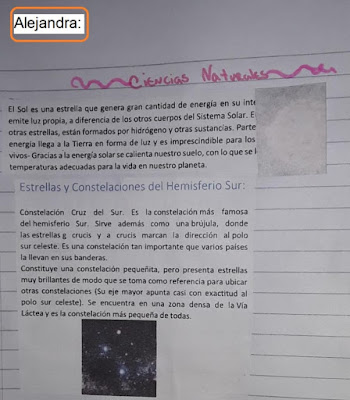 Alejandra:
Ciencias Naturales
El Sol es una estrella que genera gran cantidad de energía en su
emite luz propia, a diferencia de los otros cuerpos del Sistema Solar.
otras estrellas, están formados por hidrógeno y otras sustancias. Parte
energía llega a la Tierra en forma de luz y es imprescindible para los
vivos- Gracias a la energía solar se calienta nuestro suelo, con lo que se
temperaturas adecuadas para la vida en nuestro planeta.
Estrellas y Constelaciones del Hemisferio Sur:
Constelación Cruz del Sur. Es la constelación más famosa
del hemisferio Sur. Sirve además como una brújula, donde
las estrellas g crucis y a crucis marcan la dirección al polo
sur celeste. Es una constelación tan importante que varios países
la llevan en sus banderas.
Constituye una constelación pequeñita, pero presenta estrellas
muy brillantes de modo que se toma como referencia para ubicar
otras constelaciones (Su eje mayor apunta casi con exactitud al
polo sur celeste). Se encuentra en una zona densa de la Vía
Láctea y es la constelación más pequeña de todas.